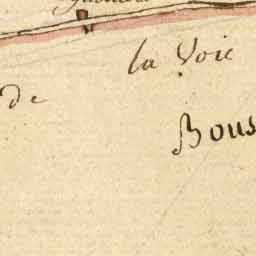 la Voie
de
Bous